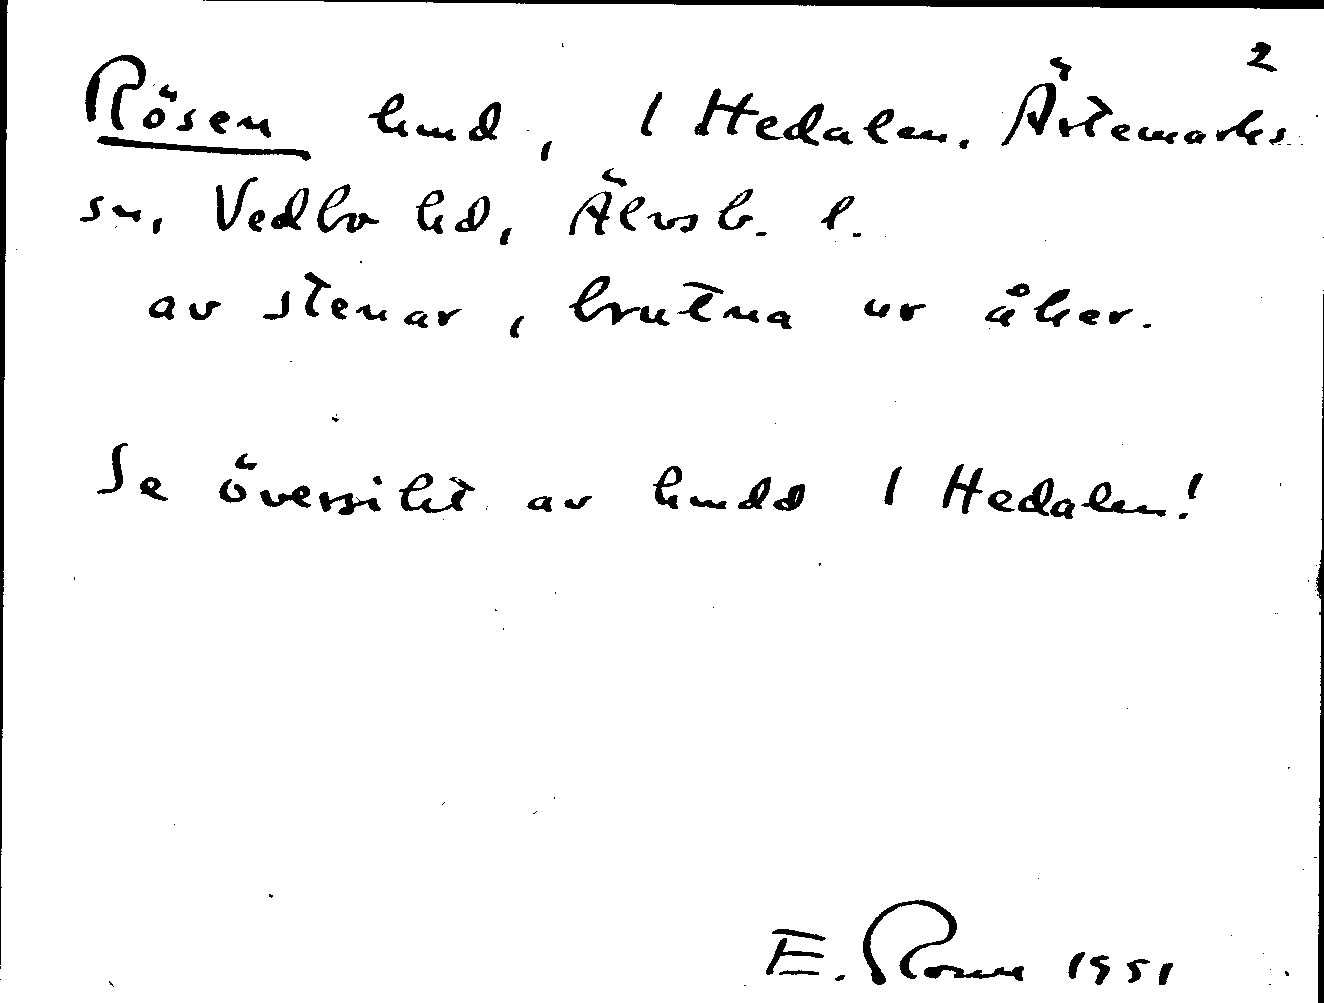 2
Rösen hmd, 1 Hedalen. Ärtemarks
sn, Vedbo hd, Älvsb. l.
av stenar, brutna ur åker.
Se översikt av hmdd 1 Hedalen!
E. 1951